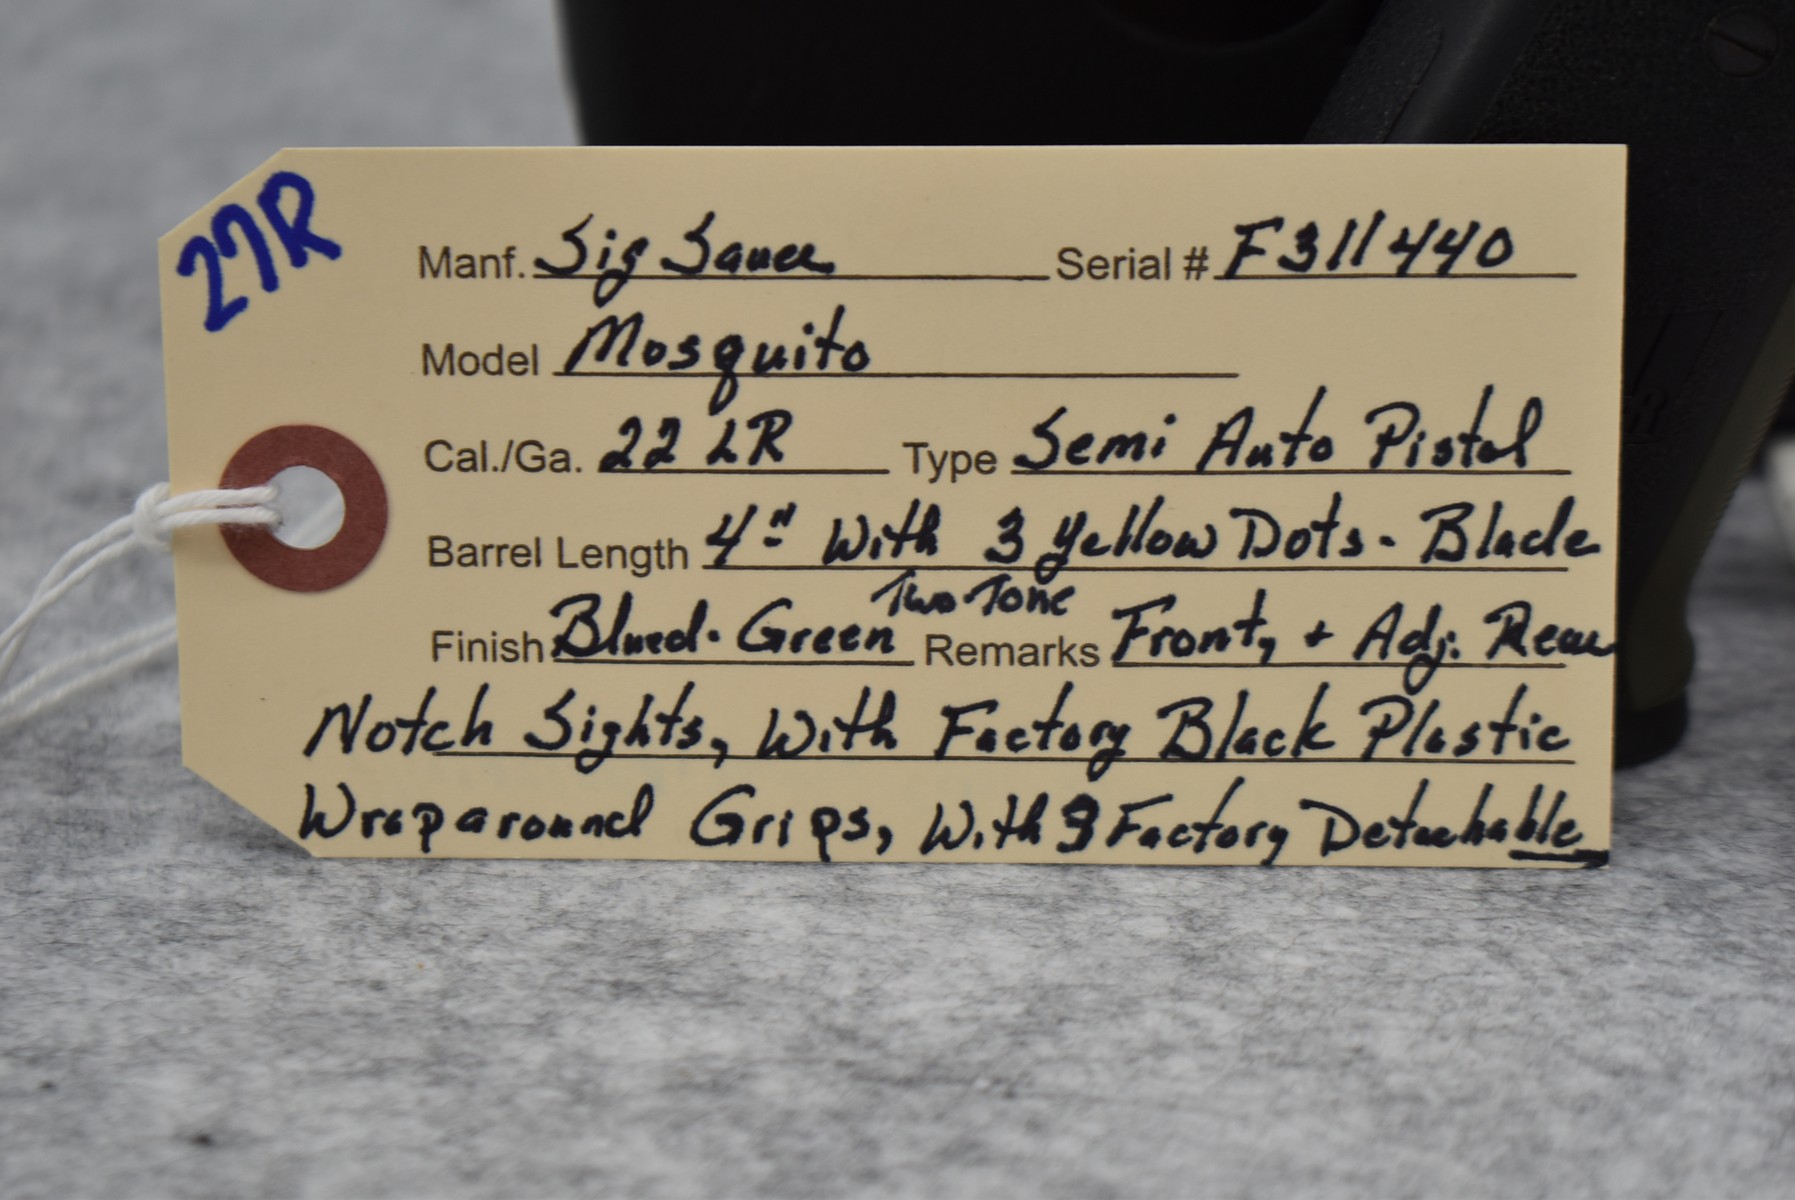 27R
Manf. Sig Sauer Serial # F311440
Model Mosquito
Cal./Ga. 22 LR Type Semi Auto Pistol
Barrel Length 4" With 3 Yellow Dots - Blade
Two Tone
Finish Blued - Green Remarks Front, + Adj. Rear
Notch Sights, With Factory Black Plastic
Wraparound Grips, With Factory Detachable